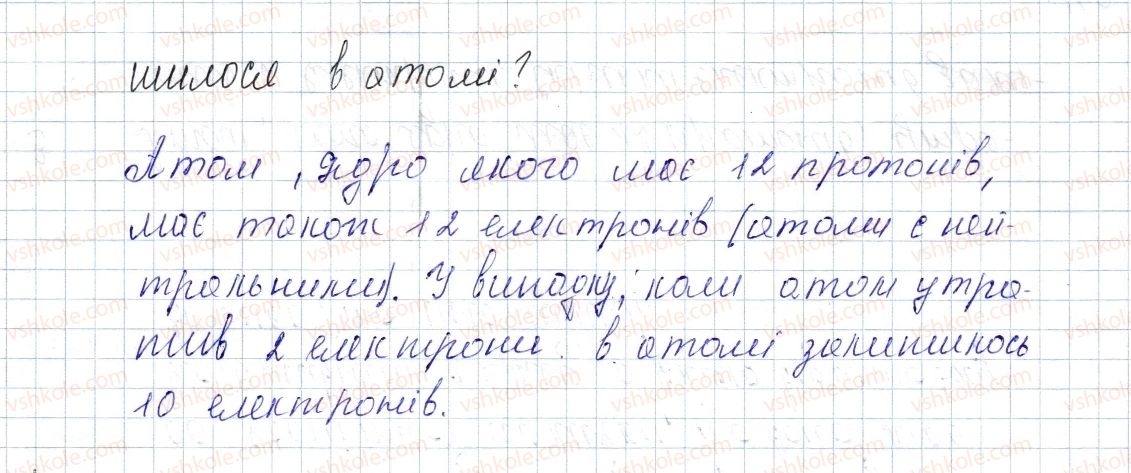 шилося в атомі?
Атом, ядро якого має 12 протонів,
має також 12 електронів (атоми є ней-
тральними). У випадку, коли атом утра-
тив 2 електрони. в атомі залишилось
10 електронів.